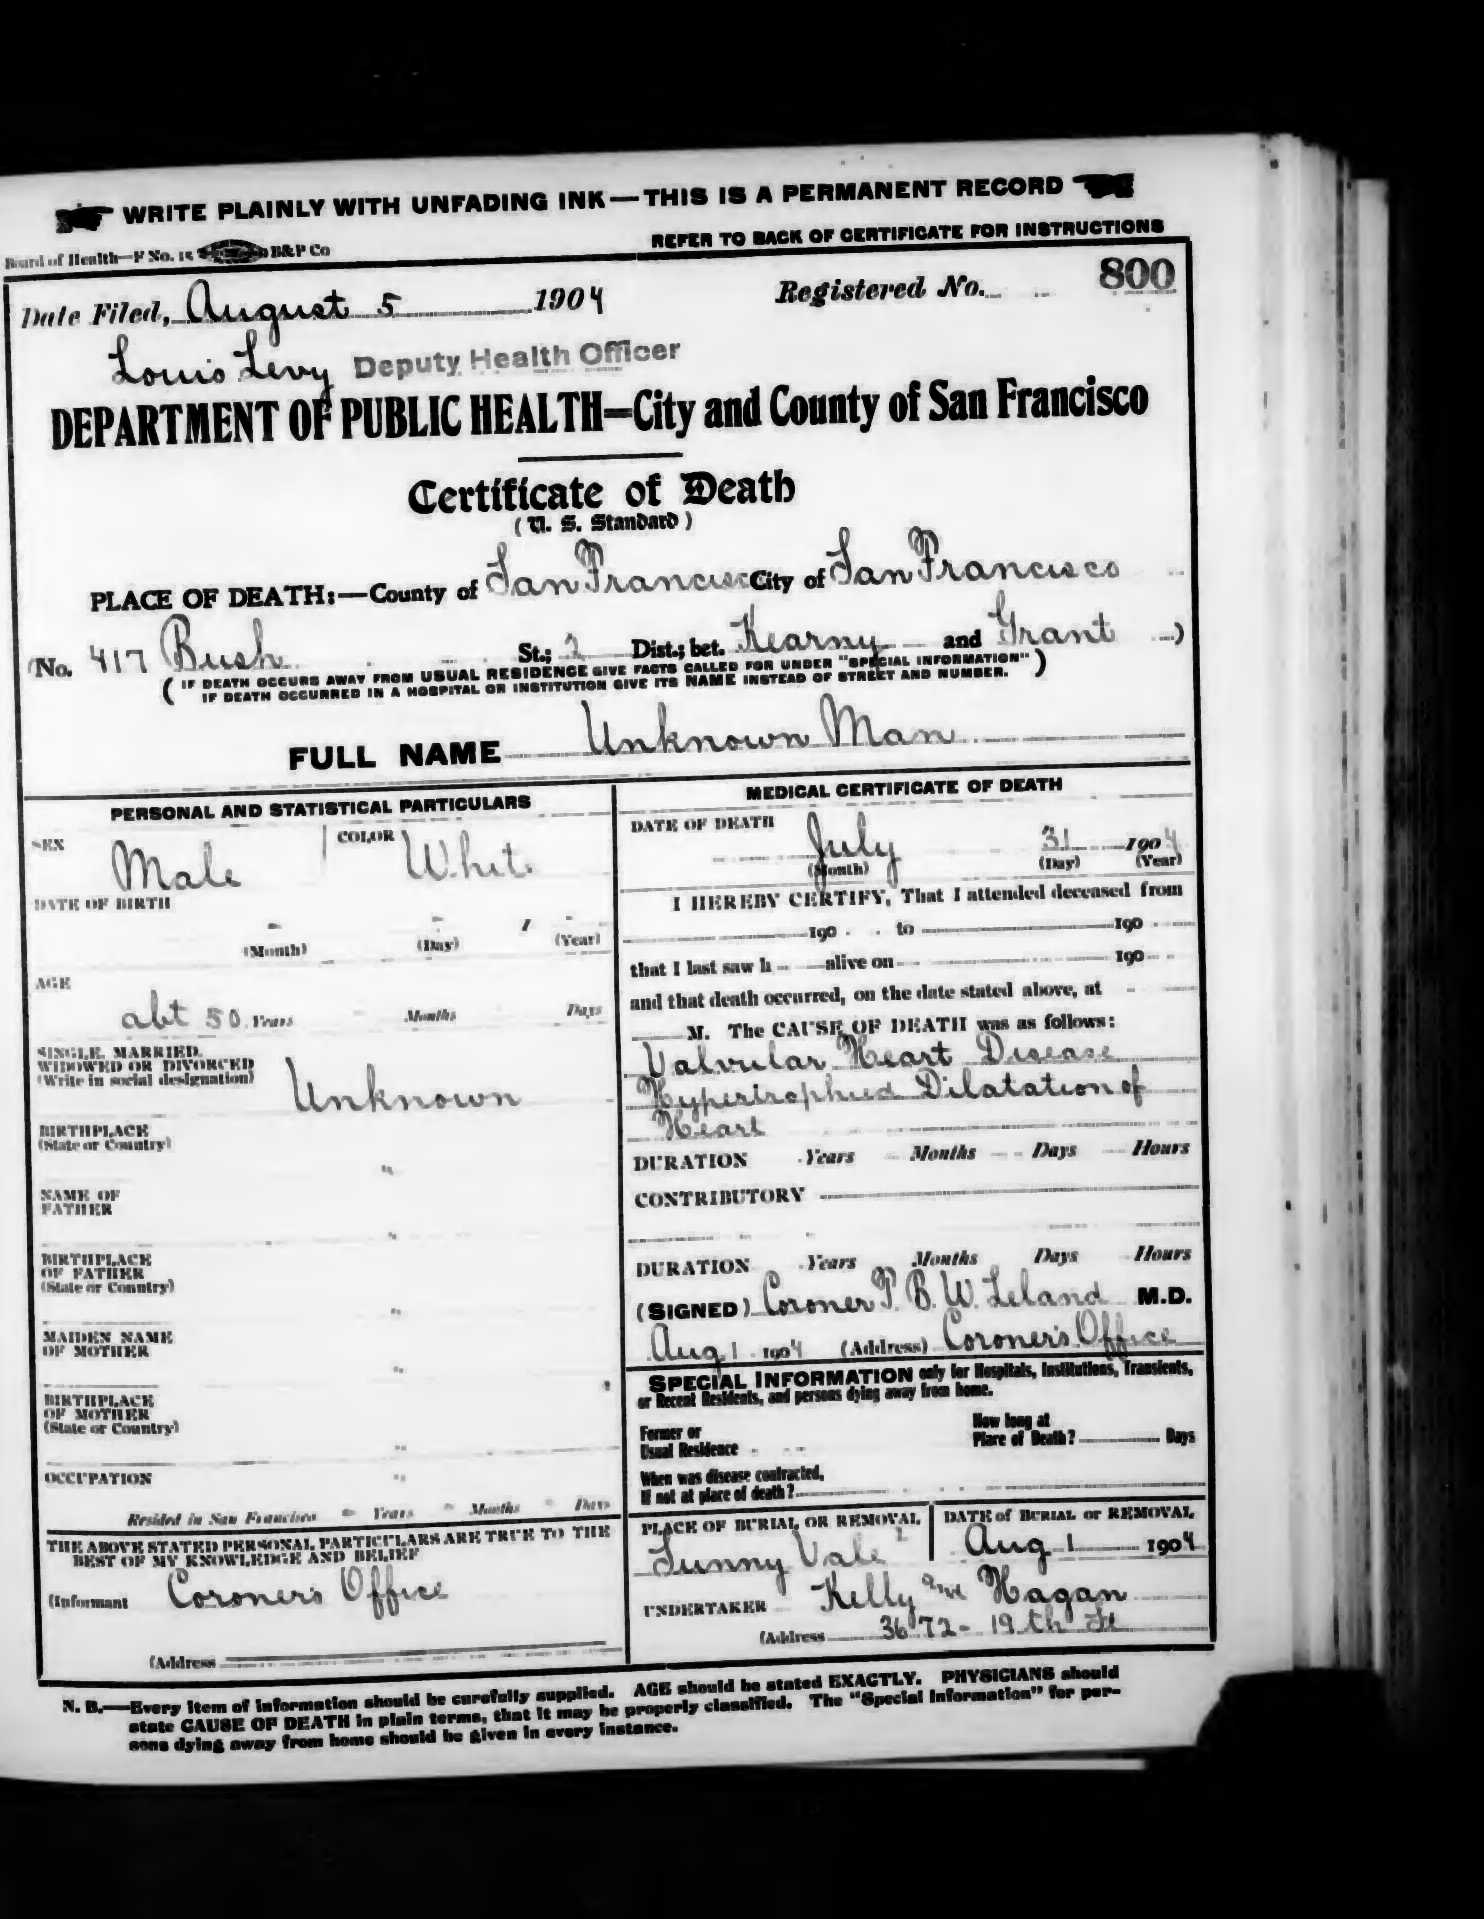 WRITE PLAINLY WITH UNFADING INK—THIS IS A PERMANENT RECORD
Board of Health—F No. 15 B&P Co
REFER TO BACK OF CERTIFICATE FOR INSTRUCTIONS
Date Filed, August 5 1904 Registered No. 800
Louis Levy Deputy Health Officer
DEPARTMENT OF PUBLIC HEALTH=City and County of San Francisco
Certificate of Death
(U. S. Standard)
PLACE OF DEATH:—County of San Francisco City of San Francisco
No. 417 Bush St.; 2 Dist.; bet. Kearny and Grant )
( IF DEATH OCCURS AWAY FROM USUAL RESIDENCE GIVE FACTS CALLED FOR UNDER "SPECIAL INFORMATION" )
IF DEATH OCCURRED IN A HOSPITAL OR INSTITUTION GIVE ITS NAME INSTEAD OF STREET AND NUMBER.
FULL NAME Unknown Man
PERSONAL AND STATISTICAL PARTICULARS
SEX Male COLOR White
DATE OF BIRTH
- - 1 -
(Month) (Day) (Year)
AGE
abt 50 Years Months Days
SINGLE, MARRIED,
WIDOWED OR DIVORCED
(Write in social designation) Unknown
BIRTHPLACE
(State or Country) "
NAME OF
FATHER "
BIRTHPLACE
OF FATHER
(State or Country) "
MAIDEN NAME
OF MOTHER "
BIRTHPLACE
OF MOTHER
(State or Country) "
OCCUPATION "
Resided in San Francisco - Years - Months - Days
THE ABOVE STATED PERSONAL PARTICULARS ARE TRUE TO THE
BEST OF MY KNOWLEDGE AND BELIEF
(Informant Coroner's Office
(Address
MEDICAL CERTIFICATE OF DEATH
DATE OF DEATH
July 31 1904
(Month) (Day) (Year)
I HEREBY CERTIFY, That I attended deceased from
190 to 190
that I last saw h alive on 190
and that death occurred, on the date stated above, at
M. The CAUSE OF DEATH was as follows:
Valvular Heart Disease
Hypertrophied Dilatation of
Heart
DURATION Years Months Days Hours
CONTRIBUTORY
DURATION Years Months Days Hours
(SIGNED) Coroner T. B. W. Leland M.D.
Aug 1 1904 (Address) Coroner's Office
SPECIAL INFORMATION only for Hospitals, Institutions, Transients,
or Recent Residents, and persons dying away from home.
Former or
Usual Residence
How long at
Place of Death? Days
When was disease contracted,
If not at place of death?
PLACE OF BURIAL OR REMOVAL
Sunny Vale
DATE of BURIAL or REMOVAL
Aug 1 1904
UNDERTAKER Kelly and Hagan
(Address 3672- 19th St
N. B.—Every item of information should be carefully supplied. AGE should be stated EXACTLY. PHYSICIANS should
state CAUSE OF DEATH in plain terms, that it may be properly classified. The "Special Information" for per-
sons dying away from home should be given in every instance.